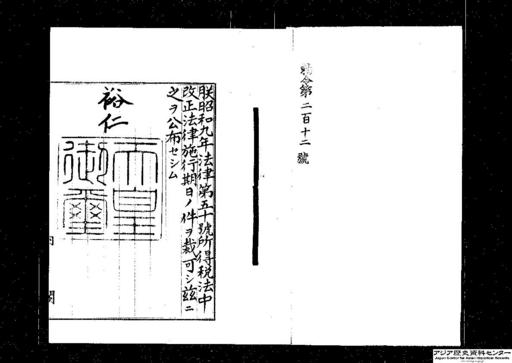 勅令第二百十二號
朕昭和九年法律第五十號所得税法中
改正法律施行期日ノ件ヲ裁可シ茲ニ
之ヲ公布セシム
裕仁
天皇
御璽
内閣
アジア歴史資料センター
Japan Center for Asian Historical Records